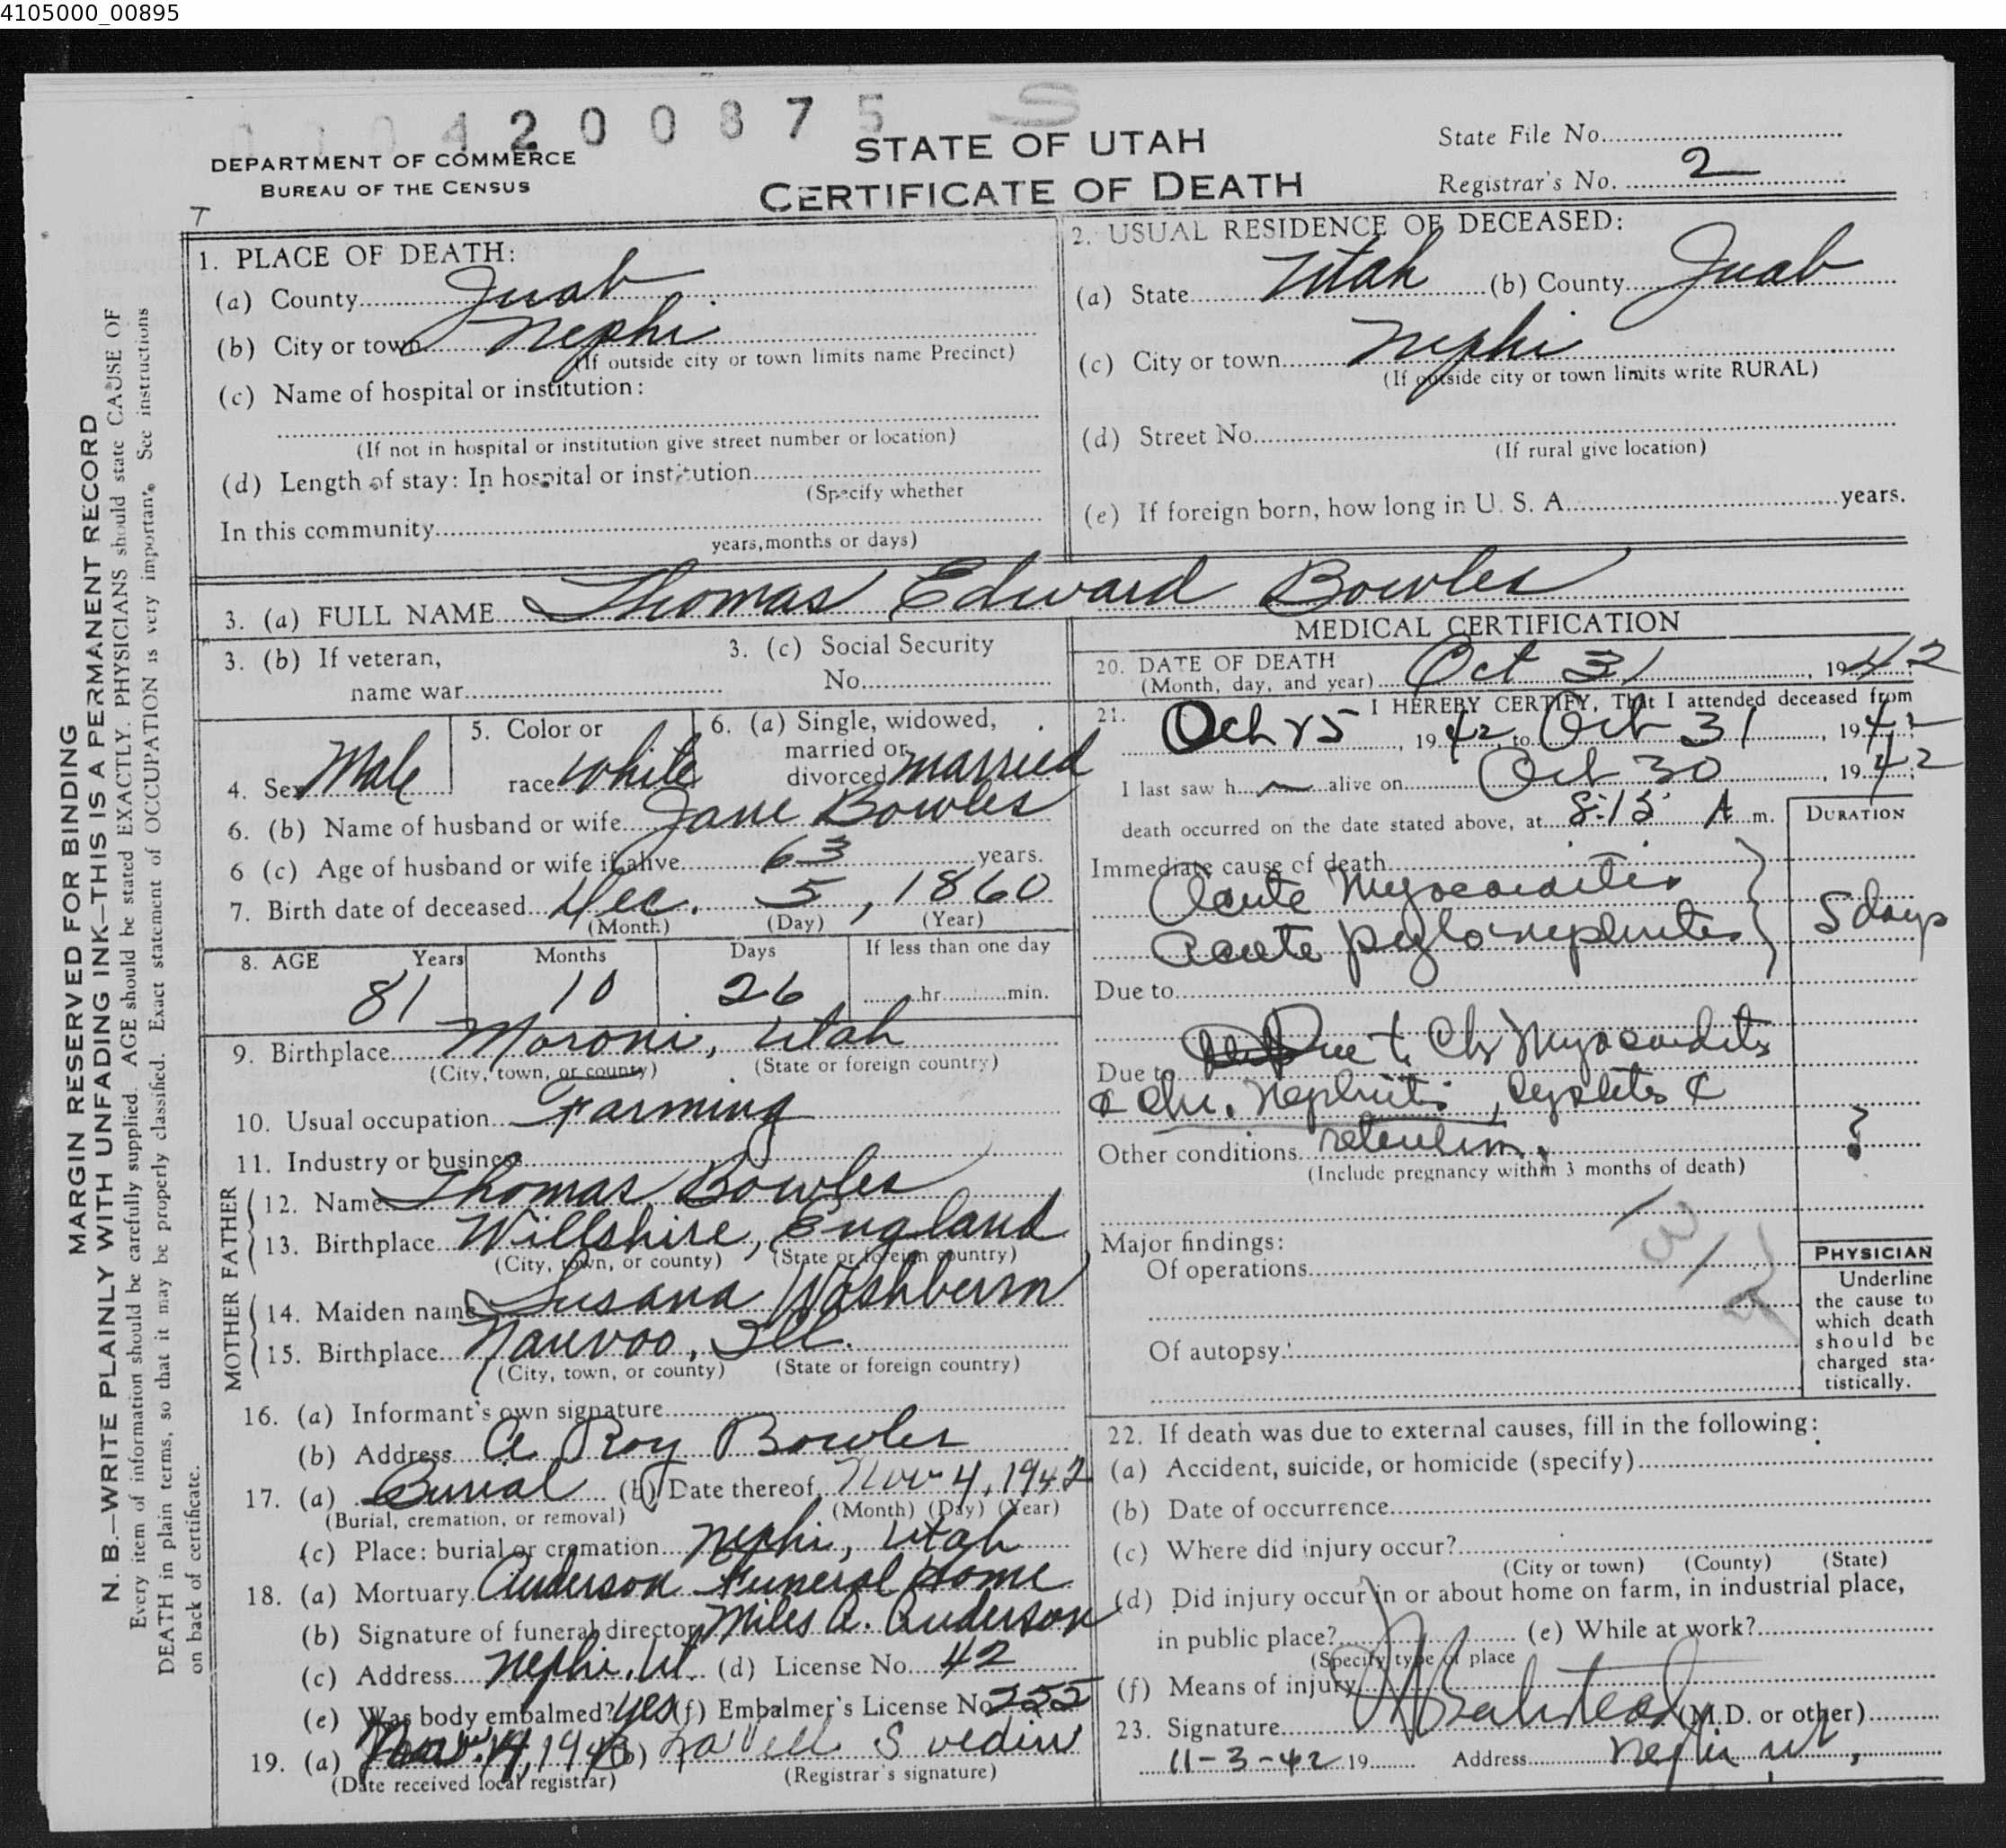 4105000_00895
4 2 0 0 8 7 5 S
DEPARTMENT OF COMMERCE
BUREAU OF THE CENSUS
STATE OF UTAH
CERTIFICATE OF DEATH
State File No.
Registrar's No. 2
T
1. PLACE OF DEATH:
(a) County Juab
(b) City or town Nephi
(If outside city or town limits name Precinct)
(c) Name of hospital or institution:
(If not in hospital or institution give street number or location)
(d) Length of stay: In hospital or institution
(Specify whether
In this community
years, months or days)
2. USUAL RESIDENCE OF DECEASED:
(a) State Utah (b) County Juab
(c) City or town Nephi
(If outside city or town limits write RURAL)
(d) Street No.
(If rural give location)
(e) If foreign born, how long in U. S. A. years.
3. (a) FULL NAME Thomas Edward Bowles
3. (b) If veteran,
name war
3. (c) Social Security
No.
4. Sex Male
5. Color or
race White
6. (a) Single, widowed,
married or
divorced married
6. (b) Name of husband or wife Jane Bowles
6 (c) Age of husband or wife if alive 63 years.
7. Birth date of deceased Dec. 5, 1860
(Month) (Day) (Year)
8. AGE Years Months Days If less than one day
81 10 26 hr. min.
9. Birthplace Moroni, Utah
(City, town, or county) (State or foreign country)
10. Usual occupation Farming
11. Industry or business
FATHER
12. Name Thomas Bowles
13. Birthplace Willshire, England
(City, town, or county) (State or foreign country)
MOTHER
14. Maiden name Susana Washbern
15. Birthplace Nauvoo, Ill.
(City, town, or county) (State or foreign country)
16. (a) Informant's own signature
(b) Address A Roy Bowles
17. (a) Burial (b) Date thereof Nov 4, 1942
(Burial, cremation, or removal) (Month) (Day) (Year)
(c) Place: burial or cremation Nephi, Utah
18. (a) Mortuary Anderson Funeral Home
(b) Signature of funeral director Miles A. Anderson
(c) Address Nephi, Ut. (d) License No. 42
(e) Was body embalmed? yes (f) Embalmer's License No. 255
19. (a) Nov. 4, 194 (b) LaVell Svedin
(Date received local registrar) (Registrar's signature)
MEDICAL CERTIFICATION
20. DATE OF DEATH
(Month, day, and year) Oct 31, 1942
21. I HEREBY CERTIFY, That I attended deceased from
Oct 25, 1942, to Oct 31, 1942
I last saw h alive on Oct 30, 1942
death occurred on the date stated above, at 8:15 A m.
DURATION
Immediate cause of death
Acute Myocarditis
Acute pyelonephritis
5 days
Due to
Due to Due to Ch Myocarditis
& Chr. Nephritis, Cystitis &
Other conditions retention.
?
(Include pregnancy within 3 months of death)
Major findings:
Of operations
Of autopsy
PHYSICIAN
Underline
the cause to
which death
should be
charged sta-
tistically.
22. If death was due to external causes, fill in the following:
(a) Accident, suicide, or homicide (specify)
(b) Date of occurrence
(c) Where did injury occur?
(City or town) (County) (State)
(d) Did injury occur in or about home on farm, in industrial place,
in public place? (e) While at work?
(Specify type of place
(f) Means of injury
23. Signature (M.D. or other)
11-3-42 19 Address Nephi Ut,
MARGIN RESERVED FOR BINDING
N. B.—WRITE PLAINLY WITH UNFADING INK—THIS IS A PERMANENT RECORD
Every item of information should be carefully supplied. AGE should be stated EXACTLY. PHYSICIANS should state CAUSE OF
DEATH in plain terms, so that it may be properly classified. Exact statement of OCCUPATION is very important. See instructions
on back of certificate.